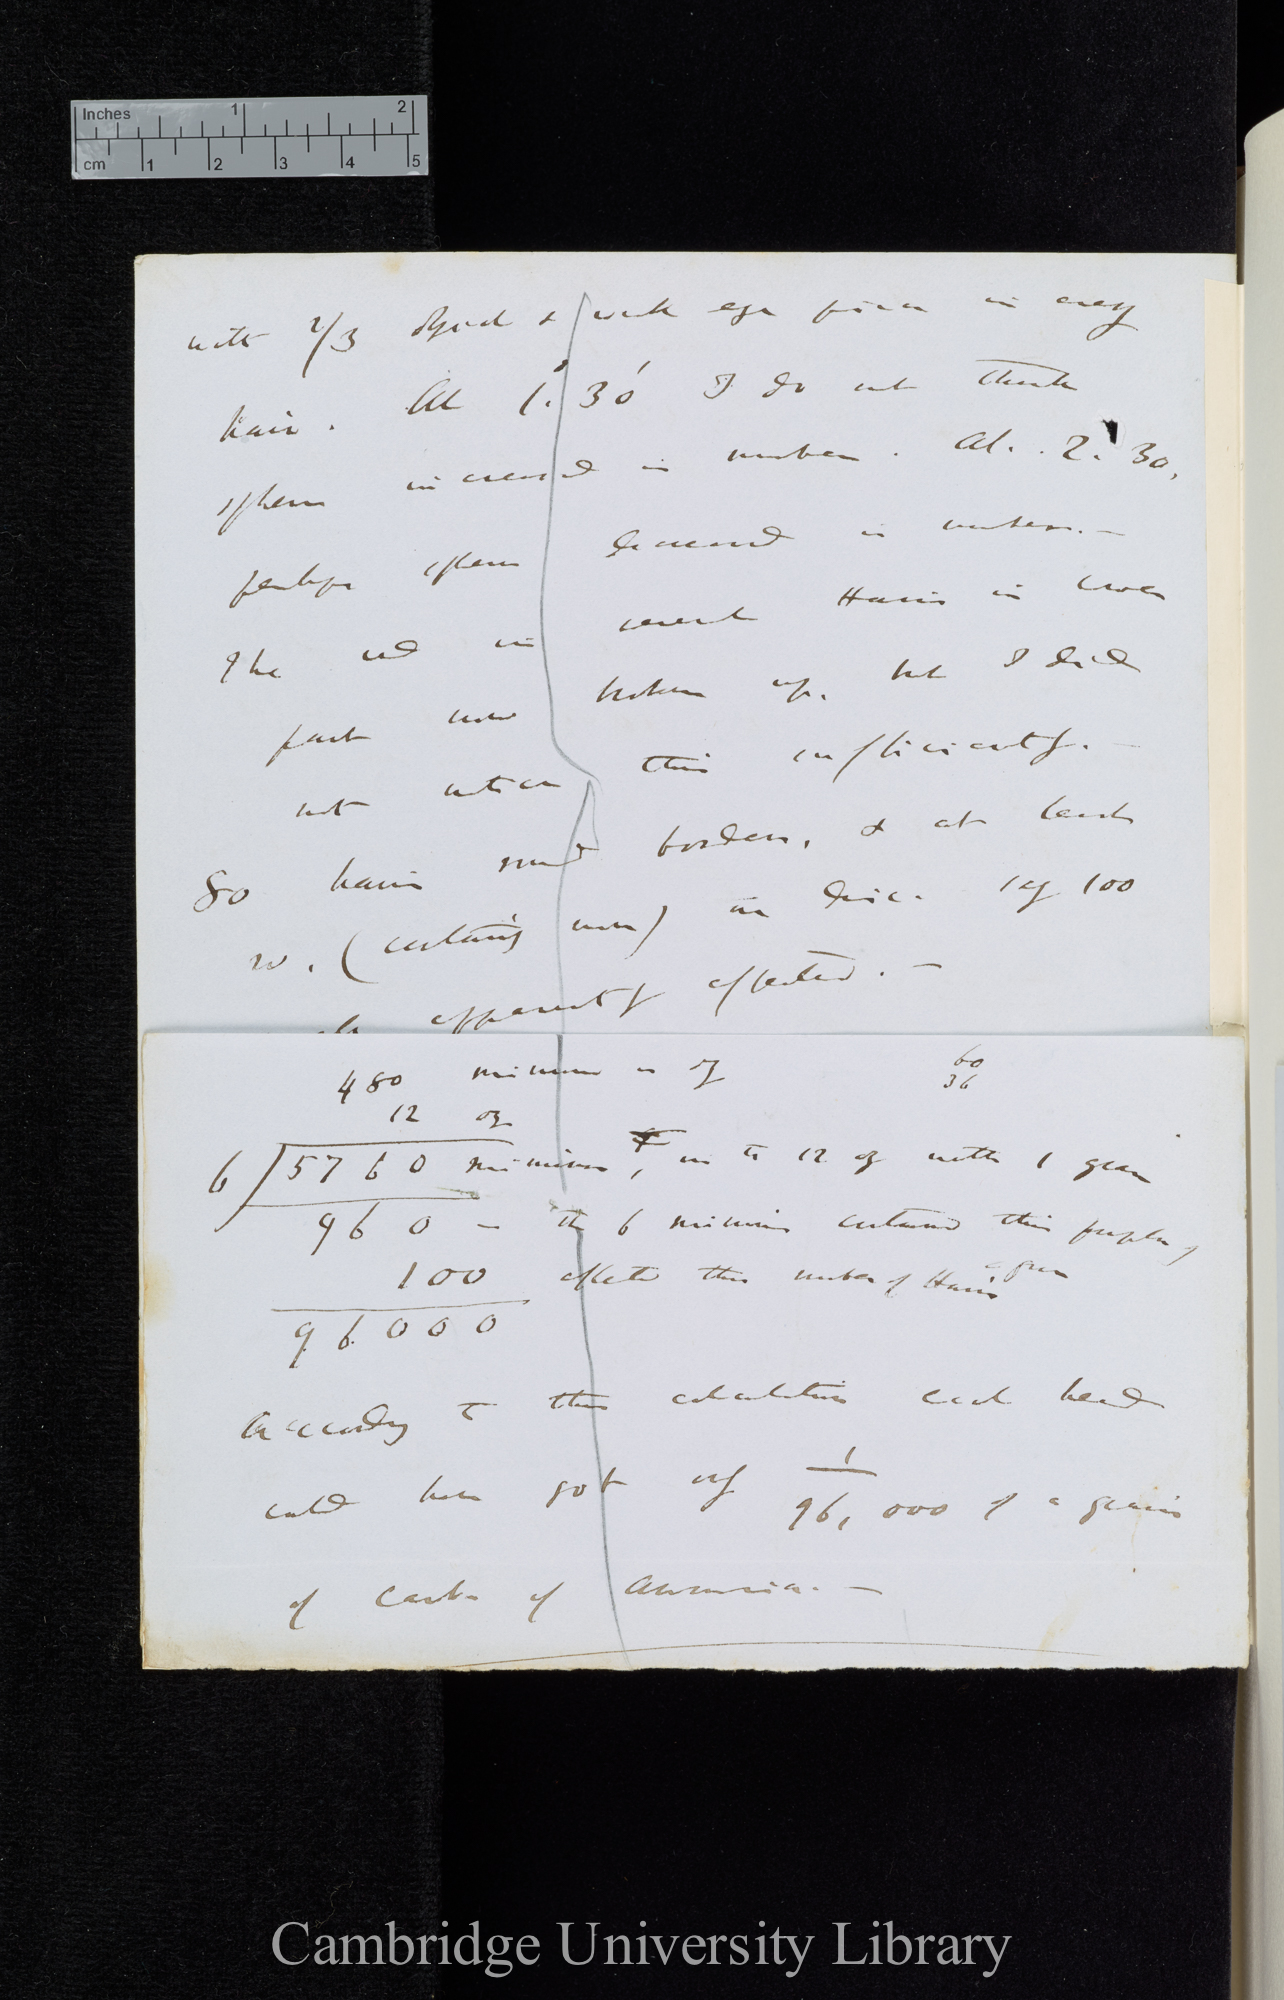 Inches 1 2
cm 1 2 3 4 5
with 2/3 & in every
hair. At 1°. 30' I do not think
spheres increased in number. At. 2°. 30,
perhaps spheres decreased in number.—
The red in several Hairs in
part now broken up, but I did
not notice this sufficiently.—
80 hairs round borders, & at least
20. (certainly more) on disc. Say 100
apparently affected.—
480 minims in oz 60
12 oz 36
6 / 5760 minims, in to 12 oz with 1 grain
960 — the 6 minims contained this
100 affected this number of Hairs
96000
According to this calculation each head
could have got only 1
96,000 of a grain
of Carb. of Ammonia.—
Cambridge University Library